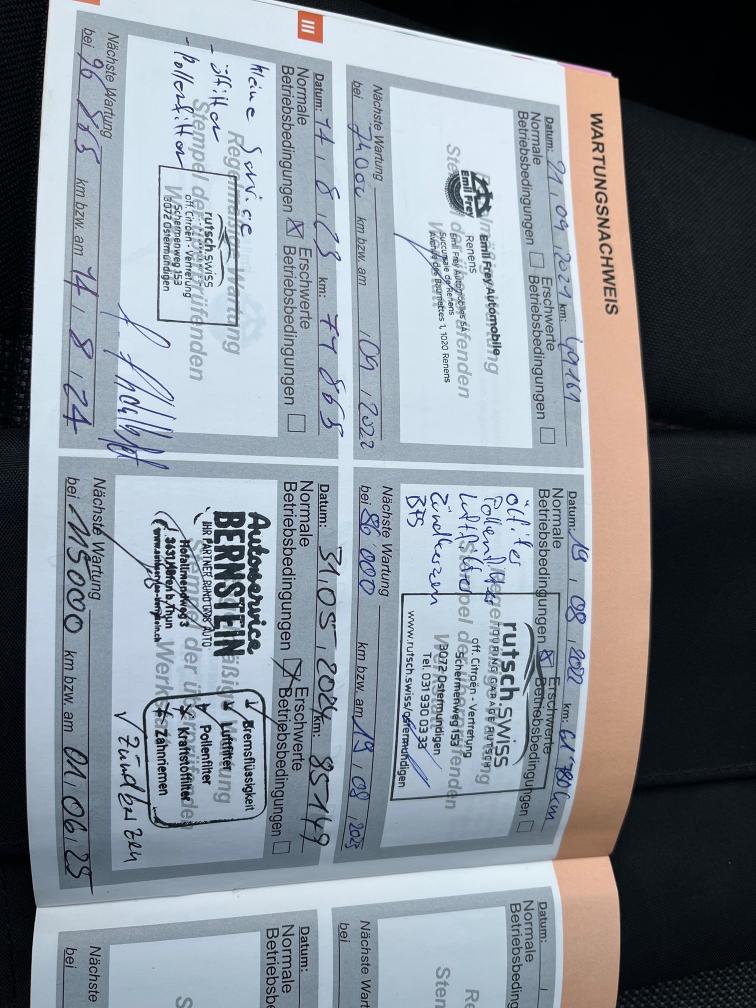 WARTUNGSNACHWEIS
Datum: 21, 09, 2021 km: 49161
Normale
Betriebsbedingungen
Erschwerte
Betriebsbedingungen
Emil Frey
Emil Frey Automobile
Renens
Emil Frey Automobiles SA
Succursale de Renens
Avenue des Baumettes 1, 1020 Renens
Nächste Wartung
bei km bzw. am , 09 , 2022
Datum: 19, 08, 2022 km: 61'780 km
Normale
Betriebsbedingungen
Erschwerte
Betriebsbedingungen
Ölfilter
Pollenfilter
Luftfilter
Zündkerzen
BFS
rutsch.swiss
TOURING GARAGE RUTSCH
off. Citroën - Vertretung
Schermenweg 153
3072 Ostermundigen
Tel. 031 930 03 33
www.rutsch.swiss/ostermundigen
Nächste Wartung
bei 86 000 km bzw. am 19, 08, 2023
III
Datum: 14, 8, 23 km: 77 865
Normale
Betriebsbedingungen X
Erschwerte
Betriebsbedingungen
kleine Service
- ölfilter
- Pollenfilter
Regelmäßige Wartung
Stempel der überprüfenden
rutsch.swiss
off. Citroën - Vertretung
Schermenweg 153
3072 Ostermundigen
Nächste Wartung
bei 96 865 km bzw. am 14, 8, 24
Datum: 31, 05, 2024 km: 85149
Normale
Betriebsbedingungen X
Erschwerte
Betriebsbedingungen
Autoservice
BERNSTEIN
IHR PARTNER RUND UMS AUTO
Bremsflüssigkeit
Luftfilter
Pollenfilter
Kraftstofffilter
Zahnriemen
✓ Zündkerzen
Nächste Wartung
bei 115000 km bzw. am 01, 06, 25
Datum:
Normale
Betriebsbeding
Nächste Wartung
bei
Datum:
Normale
Betriebsbeding
Nächste
bei